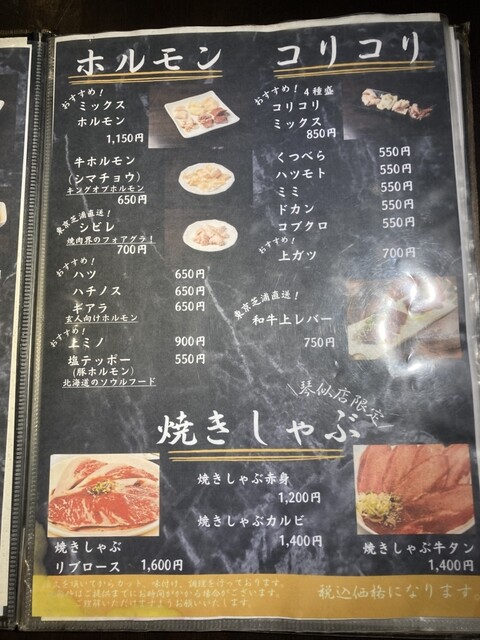 ホルモン
おすすめ!
ミックス
ホルモン
1,150円
牛ホルモン
(シマチョウ)
キングオブホルモン
650円
東京芝浦直送!
シビレ
焼肉界のフォアグラ!
700円
おすすめ!
ハツ 650円
ハチノス 650円
ギアラ 650円
玄人向けホルモン
おすすめ!
上ミノ 900円
塩テッポー 550円
(豚ホルモン)
北海道のソウルフード
コリコリ
おすすめ!
4種盛
コリコリ
ミックス
850円
くつべら 550円
ハツモト 550円
ミミ 550円
ドカン 550円
コブクロ 550円
おすすめ!
上ガツ 700円
東京芝浦直送!
和牛上レバー
750円
琴似店限定
焼きしゃぶ
焼きしゃぶ赤身
1,200円
焼きしゃぶカルビ
1,400円
焼きしゃぶ
リブロース 1,600円
焼きしゃぶ牛タン
1,400円
を頂いてからカット、味付け、調理を行っております。
ご提供までにお時間がかかる場合がございます。
ご理解いただけますようお願いいたします。
税込価格になります。